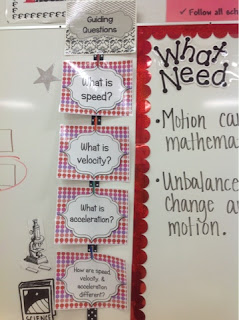 Guiding
Questions
What is
speed?
What is
velocity?
What is
acceleration?
How are speed,
velocity, &
acceleration
different?
SCIENCE
✓ Follow all sch
What
Need
• Motion ca
mathema
• Unbalance
change a
motion.